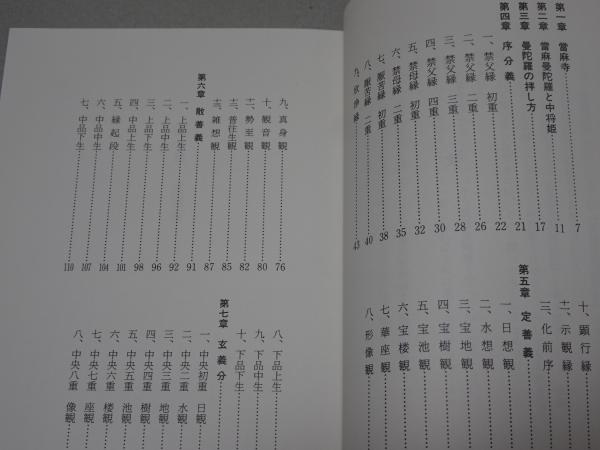 第一章 當麻寺……7
第二章 當麻曼陀羅と中将姫……11
第三章 曼陀羅の拝し方……17
第四章 序分義……21
一、禁父縁 初重……22
二、禁父縁 二重……26
三、禁父縁 三重……28
四、禁父縁 四重……30
五、禁母縁 初重……32
六、禁母縁 二重……35
七、厭苦縁 初重……38
八、厭苦縁 二重……40
九、欣浄縁……43
十、顕行縁……
十一、示観縁……
十二、化前序……
第五章 定善義……
一、日想観……
二、水想観……
三、宝地観……
四、宝樹観……
五、宝池観……
六、宝楼観……
七、華座観……
八、形像観……
九、真身観……76
十、観音観……80
十一、勢至観……82
十二、普往生観……85
十三、雑想観……87
第六章 散善義……91
一、上品上生……92
二、上品中生……96
三、上品下生……98
四、中品上生……101
五、縁起段……104
六、中品中生……107
七、中品下生……110
八、下品上生……
九、下品中生……
十、下品下生……
第七章 玄義分……
一、中央初重 日観……
二、中央二重 水観……
三、中央三重 地観……
四、中央四重 樹観……
五、中央五重 池観……
六、中央六重 楼観……
七、中央七重 座観……
八、中央八重 像観……